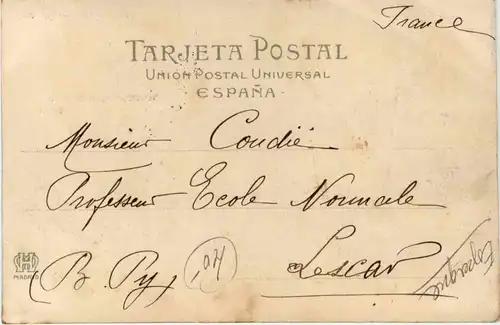 France
TARJETA POSTAL
UNIÓN POSTAL UNIVERSAL
· ESPAÑA ·
Monsieur
Professeur Ecole Normale
Lescar
(B. Py)
MADRID
Espagne